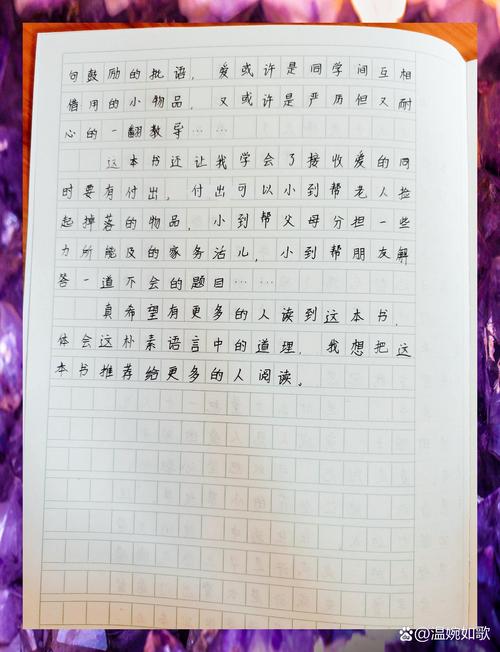 句鼓励的批语，爱或许是同学间互相
借用的小物品，又或许是严厉但又耐
心的一翻教导……
这本书还让我学会了接收爱的同
时要有付出，付出可以小到帮老人捡
起掉落的物品，小到帮父母分担一些
力所能及的家务活儿，小到帮朋友解
答一道不会的题目……
真希望有更多的人读到这本书，
体会这朴素语言中的道理，我想把这
本书推荐给更多的人阅读。
@温婉如歌